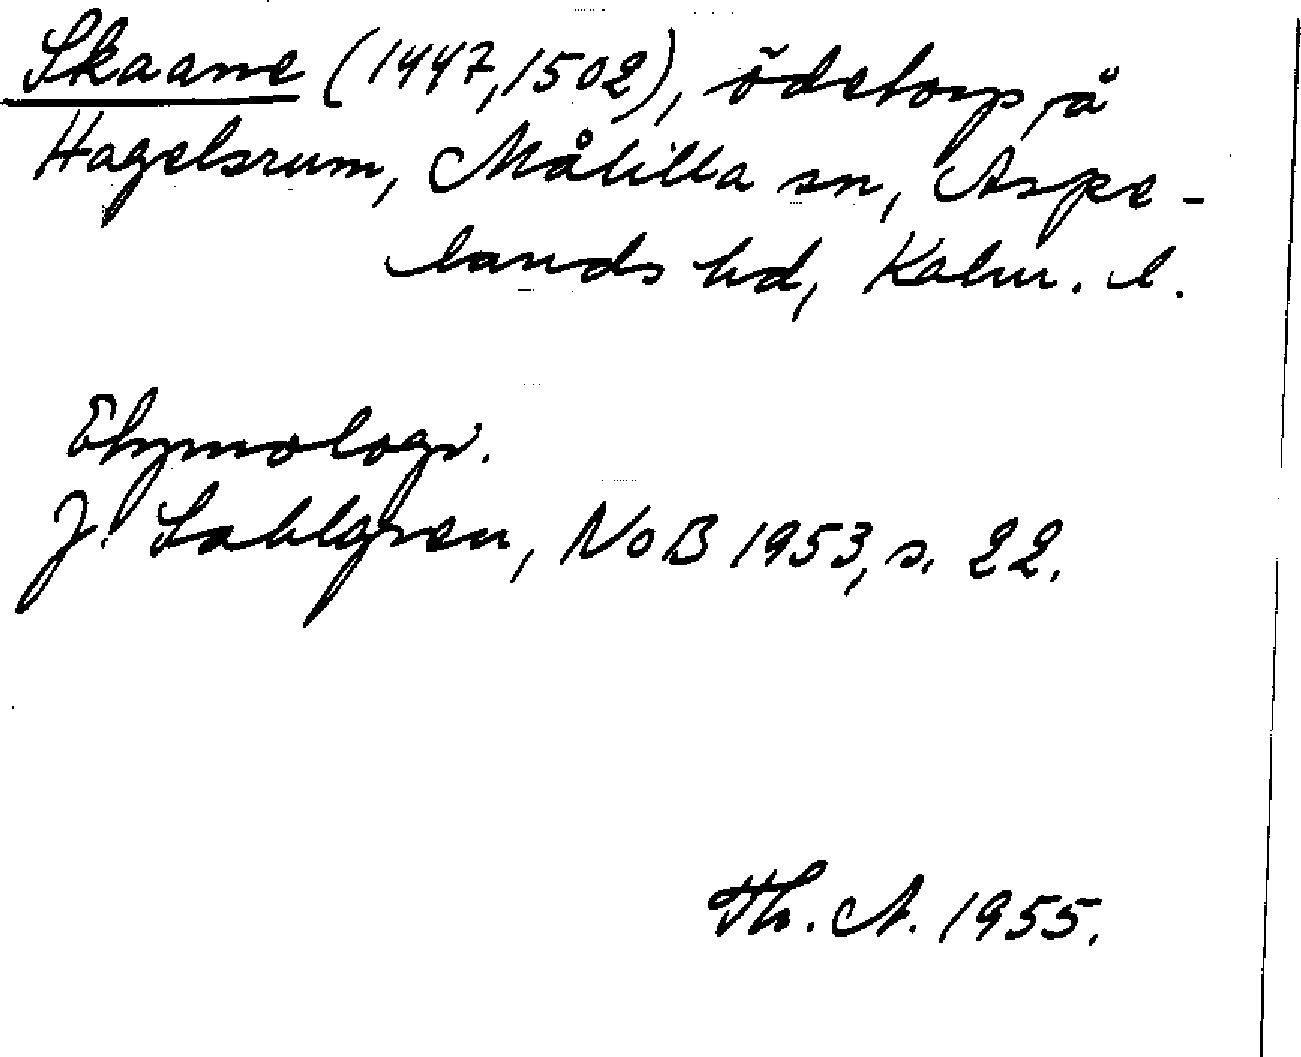 Skaane (1447, 1502), ödetorp å
Hagelsrum, Målilla sn, Aspe-
lands hd, Kalm. l.
Etymologi.
J. Sahlgren, NoB 1953, s. 22.
Th. A. 1955.